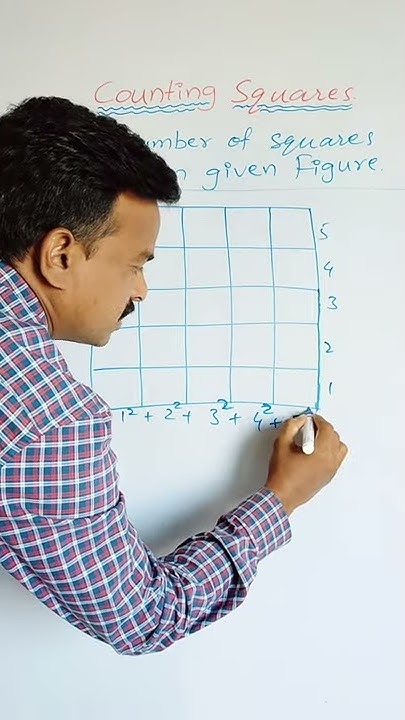 Counting Squares.
of squares
given Figure.
5
4
3
2
1
1² + 2² + 3² + 4² +